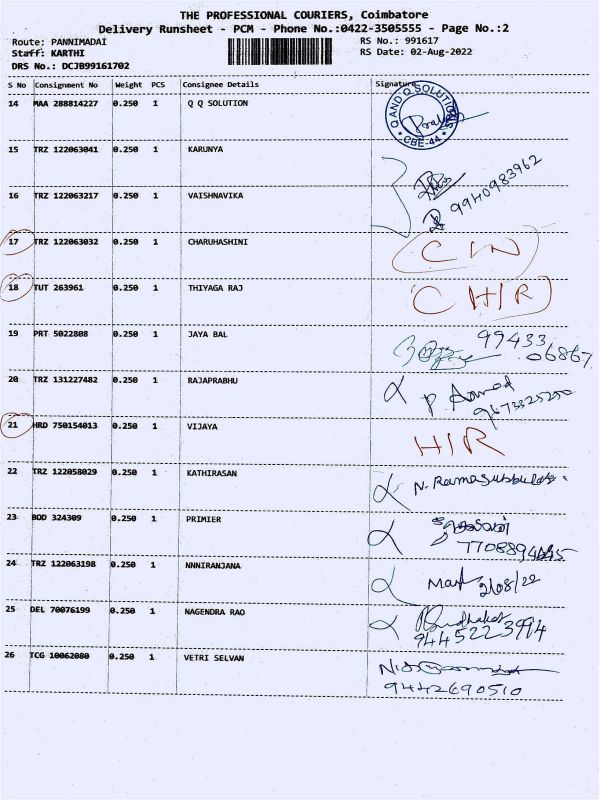 THE PROFESSIONAL COURIERS, Coimbatore
Delivery Runsheet - PCM - Phone No.:0422-3505555 - Page No.:2
Route: PANNIMADAI RS No.: 991617
Staff: KARTHI RS Date: 02-Aug-2022
DRS No.: DCJB99161702
S No Consignment No Weight PCS Consignee Details Signature
14 MAA 288814227 0.250 1 Q Q SOLUTION Q AND Q SOLUTIONS CBE-44
15 TRZ 122063041 0.250 1 KARUNYA
16 TRZ 122063217 0.250 1 VAISHNAVIKA 9940983962
17 TRZ 122063032 0.250 1 CHARUHASHINI
18 TUT 263961 0.250 1 THIYAGA RAJ (HIR)
19 PRT 5022808 0.250 1 JAYA BAL 99433 06867
20 TRZ 131227482 0.250 1 RAJAPRABHU
21 HRD 750154013 0.250 1 VIJAYA HIR
22 TRZ 122058029 0.250 1 KATHIRASAN
23 BOD 324309 0.250 1 PRIMIER
24 TRZ 122063198 0.250 1 NNNIRANJANA
25 DEL 70076199 0.250 1 NAGENDRA RAO
26 TCG 10062080 0.250 1 VETRI SELVAN
9442690510